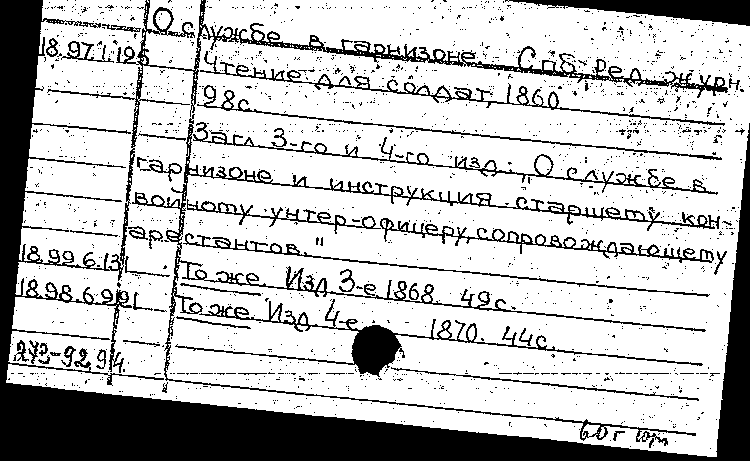 О службе в гарнизоне. Спб, Ред. журн.
18.97.1.195 Чтение для солдат, 1860
98с.
Загл 3-го и 4-го изд.: „О службе в
гарнизоне и инструкция старшему кон-
войному унтер-офицеру, сопровождающему
арестантов."
18.99.6.131 То же. Изд 3-е 1868. 49с.
18.98.6.991 То же. Изд 4-е 1870. 44с.
273-92,94
60г